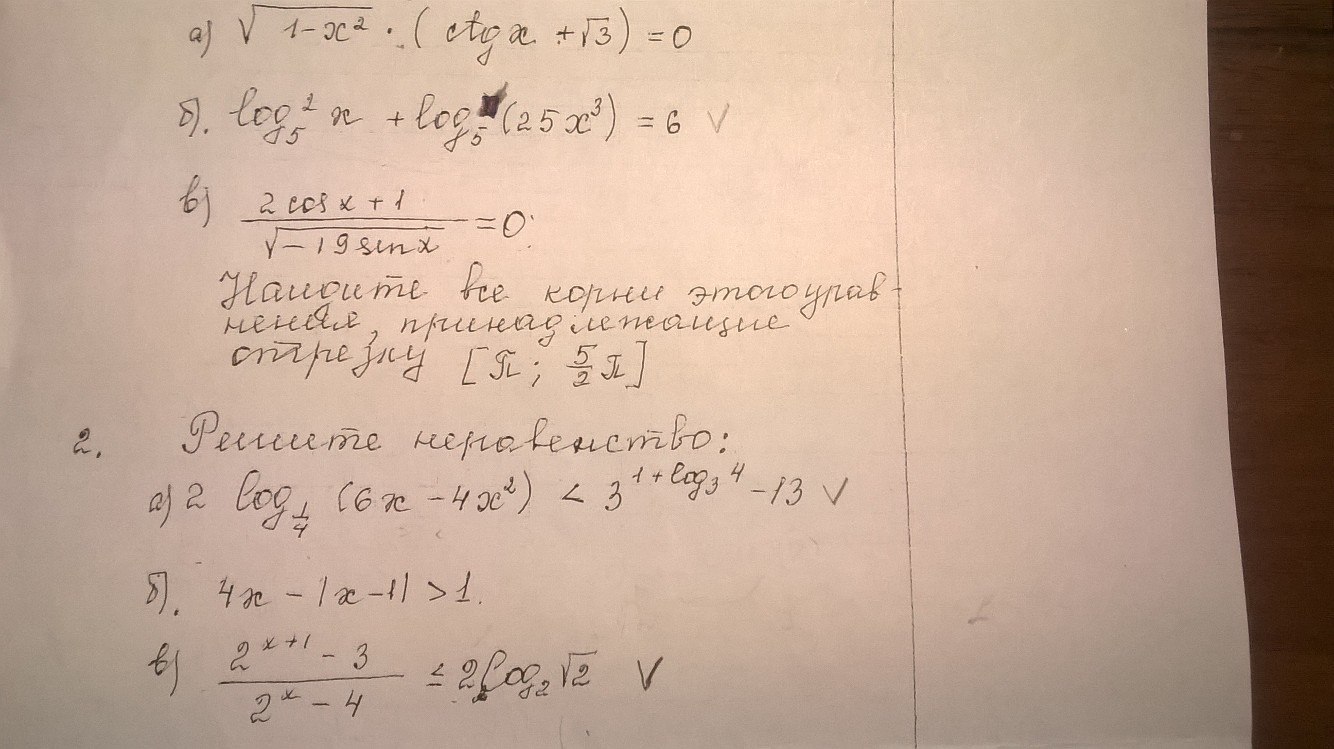 а) √(1-x²) · (ctg x + √3) = 0
б). log₅² x + log₅(25x³) = 6 V
в) (2 cos x + 1)/√(-19 sin x) = 0.
Найдите все корни этого урав-
нения, принадлежащие
отрезку [π; 5/2 π]
2. Решите неравенство:
а) 2 log_{1/4} (6x - 4x²) < 3^{1+log₃4} - 13 V
б). 4x - |x-1| > 1.
в) (2^{x+1} - 3)/(2^x - 4) ≤ 2 log₂ √2 V